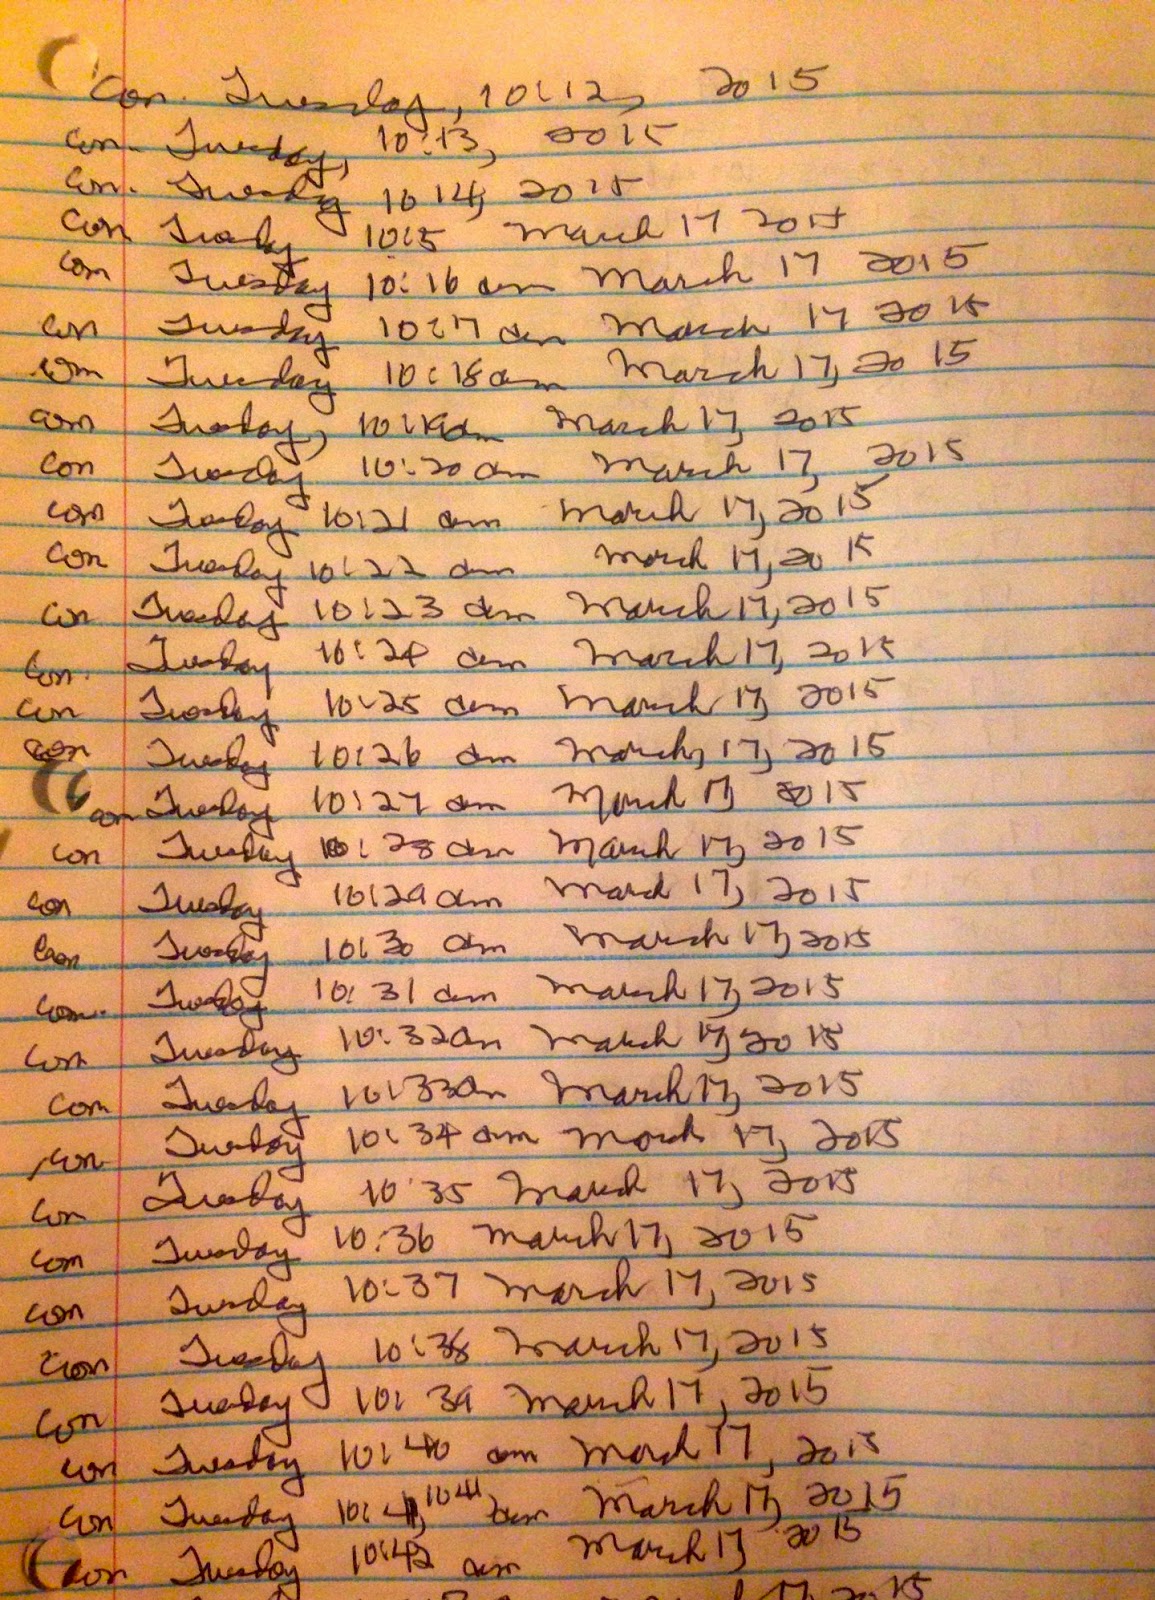 Con. Tuesday, 10:12, 2015
Con. Tuesday, 10:13, 2015
Con. Tuesday 10 14, 2015
Con Tuesday 10:15 March 17 2015
Con Tuesday 10:16 am March 17 2015
Con Tuesday 10:17 am March 17 2015
Con Tuesday 10:18 am March 17, 2015
Con Tuesday, 10:19 am March 17, 2015
Con Tuesday 10:20 am March 17, 2015
Con Tuesday 10:21 am March 17, 2015
Con Tuesday 10:22 am March 17, 2015
Con Tuesday 10:23 am March 17, 2015
Con. Tuesday 10:24 am March 17, 2015
Con Tuesday 10:25 am March 17, 2015
Con Tuesday 10:26 am March, 17, 2015
Con Tuesday 10:27 am March 17, 2015
Con Tuesday 10:28 am March 17, 2015
Con Tuesday 10:29 am March 17, 2015
Con Tuesday 10:30 am March 17, 2015
Con. Tuesday 10:31 am March 17, 2015
Con Tuesday 10:32 am March 17, 2015
Con Tuesday 10:33 am March 17, 2015
Con Tuesday 10:34 am March 17, 2015
Con Tuesday 10:35 March 17, 2015
Con Tuesday 10:36 March 17, 2015
Con Tuesday 10:37 March 17, 2015
Con Tuesday 10:38 March 17, 2015
Con Tuesday 10:39 March 17, 2015
Con Tuesday 10:40 am March 17, 2015
Con Tuesday 10:41, 10 41 am March 17, 2015
Con Tuesday 10:42 am March 17 2015
March 17, 2015